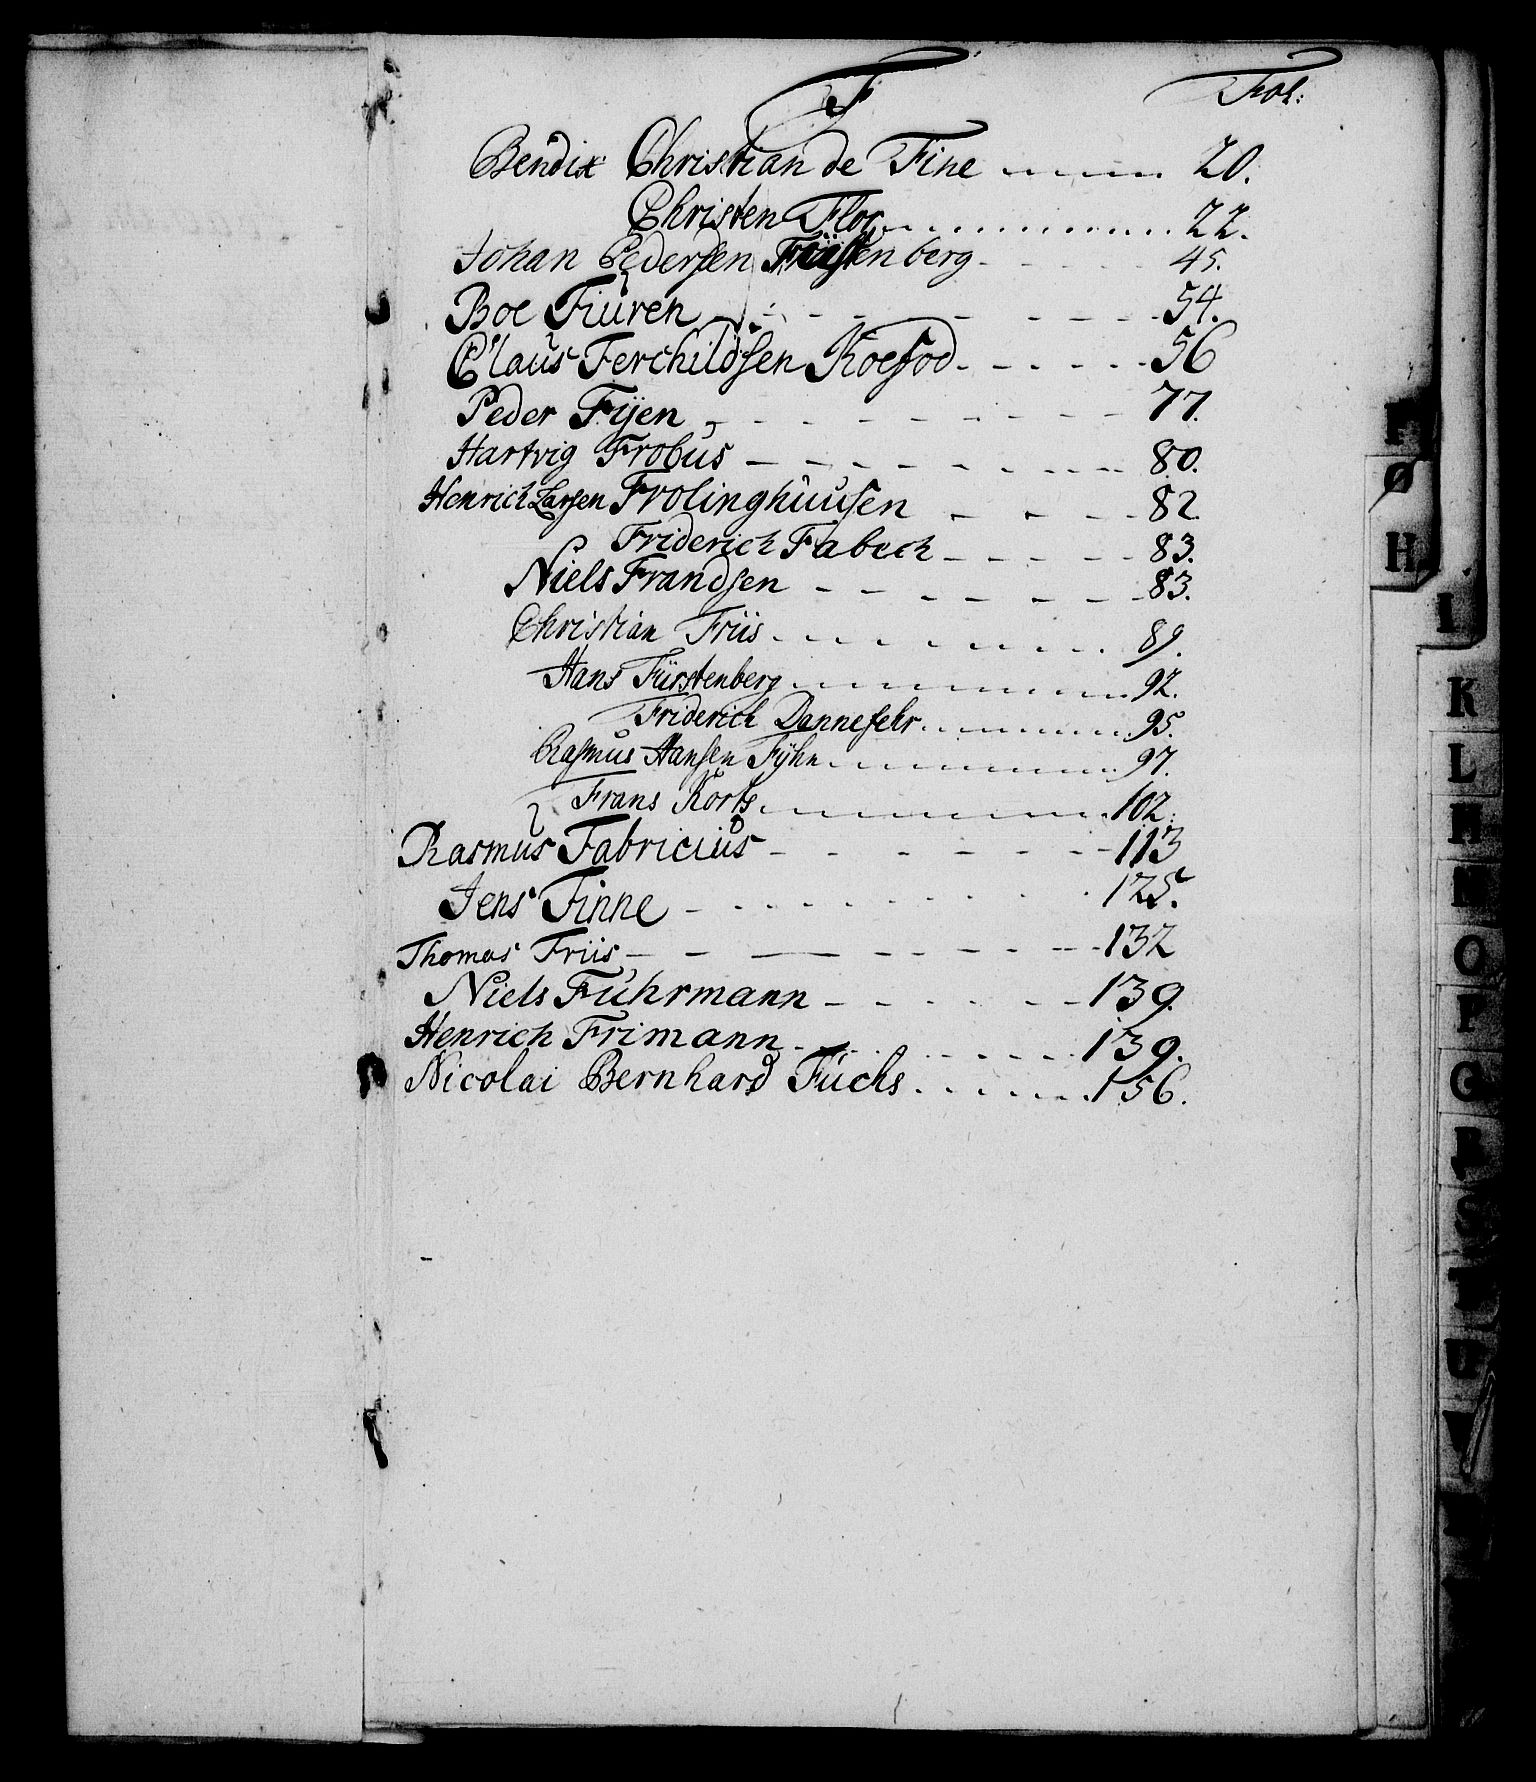 F
Fol:
Bendix Christian de Fine 20.
Christen Flor 22.
Johan Pedersen Fürstenberg 45.
Boe Fiuren 54.
Claus Ferchildsen Koefod 56
Peder Fijen 77.
Hartvig Frobus 80.
Henrich Larsen Frolinghuusen 82
Friderich Fabech 83.
Niels Frandsen 83.
Christian Friis 89.
Hans Fürstenberg 92.
Friderich Dannefehr 95.
Rasmus Hansen Fÿhn 97.
Frans Korts 102.
Rasmus Fabricius 113
Jens Finne 125.
Thomas Friis 132
Niels Fuhrmann 139.
Henrich Frimann 139.
Nicolai Bernhard Fuchs 156.
Ø
H
I
K
L
M
N
O
P
Q
R
S
T
U
V